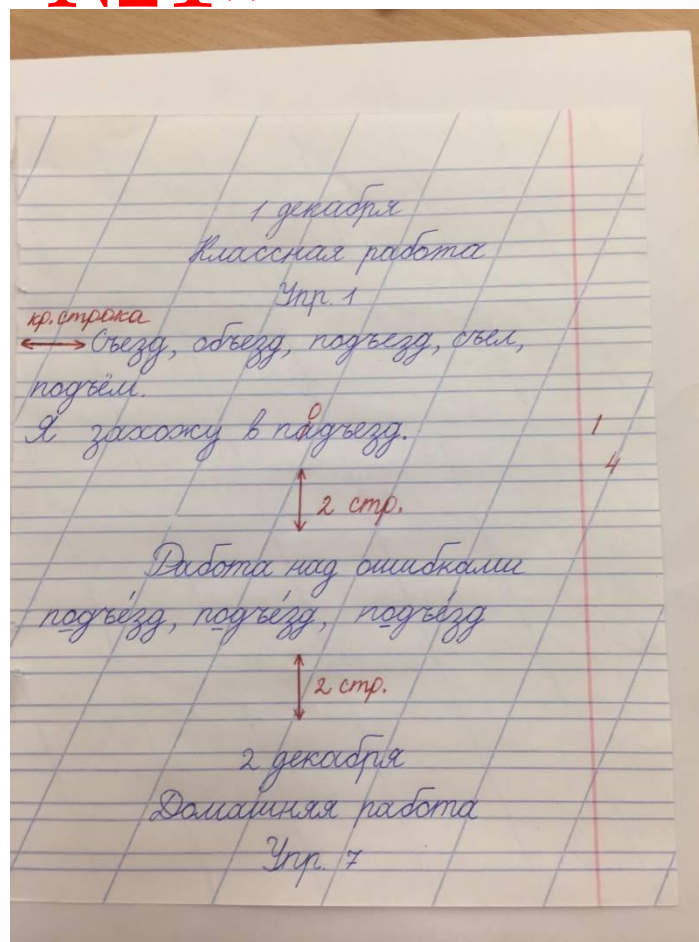 №1»
1 декабря
Классная работа
Упр. 1
кр. строка
Съезд, объезд, подъезд, съел,
подъём.
Я захожу в подъезд.
1
4
2 стр.
Работа над ошибками
подъе́зд, подъе́зд, подъе́зд
2 стр.
2 декабря
Домашняя работа
Упр. 7